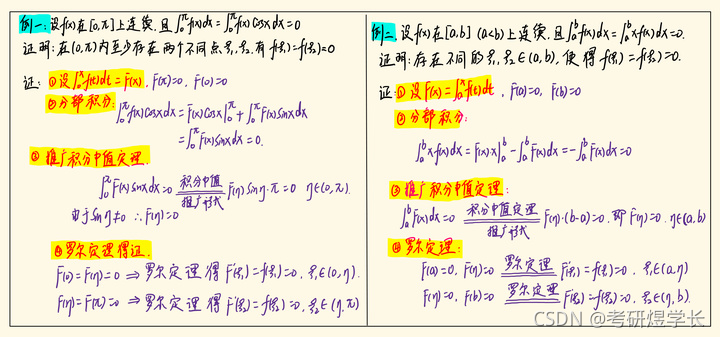 例一:设f(x)在[0,π]上连续,且∫₀^π f(x)dx=∫₀^π f(x)cosxdx=0
证明:在(0,π)内至少存在两个不同点ξ₁,ξ₂,有f(ξ₁)=f(ξ₂)=0
证:①设∫₀^x f(t)dt=F(x), F(π)=0, F(0)=0
②分部积分:∫₀^π f(x)cosxdx=F(x)cosx|₀^π+∫₀^π F(x)sinxdx
=∫₀^π F(x)sinxdx=0.
③推广积分中值定理.
∫₀^π F(x)sinxdx=0 积分中值 推广形式 F(η)sinη·π=0 η∈(0,π).
由于sinη≠0 ∴F(η)=0
④罗尔定理得证.
F(0)=F(η)=0 ⇒ 罗尔定理得F'(ξ₁)=f(ξ₁)=0, ξ₁∈(0,η).
F(η)=F(π)=0 ⇒ 罗尔定理得F'(ξ₂)=f(ξ₂)=0, ξ₂∈(η,π)
例二:设f(x)在[a,b](a<b)上连续,且∫ₐ^b f(x)dx=∫ₐ^b xf(x)dx=0.
证明:存在不同的ξ₁,ξ₂∈(a,b),使得f(ξ₁)=f(ξ₂)=0.
证:①设F(x)=∫ₐ^x f(t)dt, F(a)=0, F(b)=0
②分部积分:
∫ₐ^b x·f(x)dx=F(x)·x|ₐ^b-∫ₐ^b F(x)dx=-∫ₐ^b F(x)dx=0
③推广积分中值定理:
∫ₐ^b F(x)dx=0 积分中值定理 推广形式 F(η)·(b-a)=0,即F(η)=0,η∈(a,b)
④罗尔定理:
F(a)=0, F(η)=0 罗尔定理 F'(ξ₁)=f(ξ₁)=0, ξ₁∈(a,η)
F(η)=0, F(b)=0 罗尔定理 F'(ξ₂)=f(ξ₂)=0, ξ₂∈(η,b).
CSDN @考研煜学长